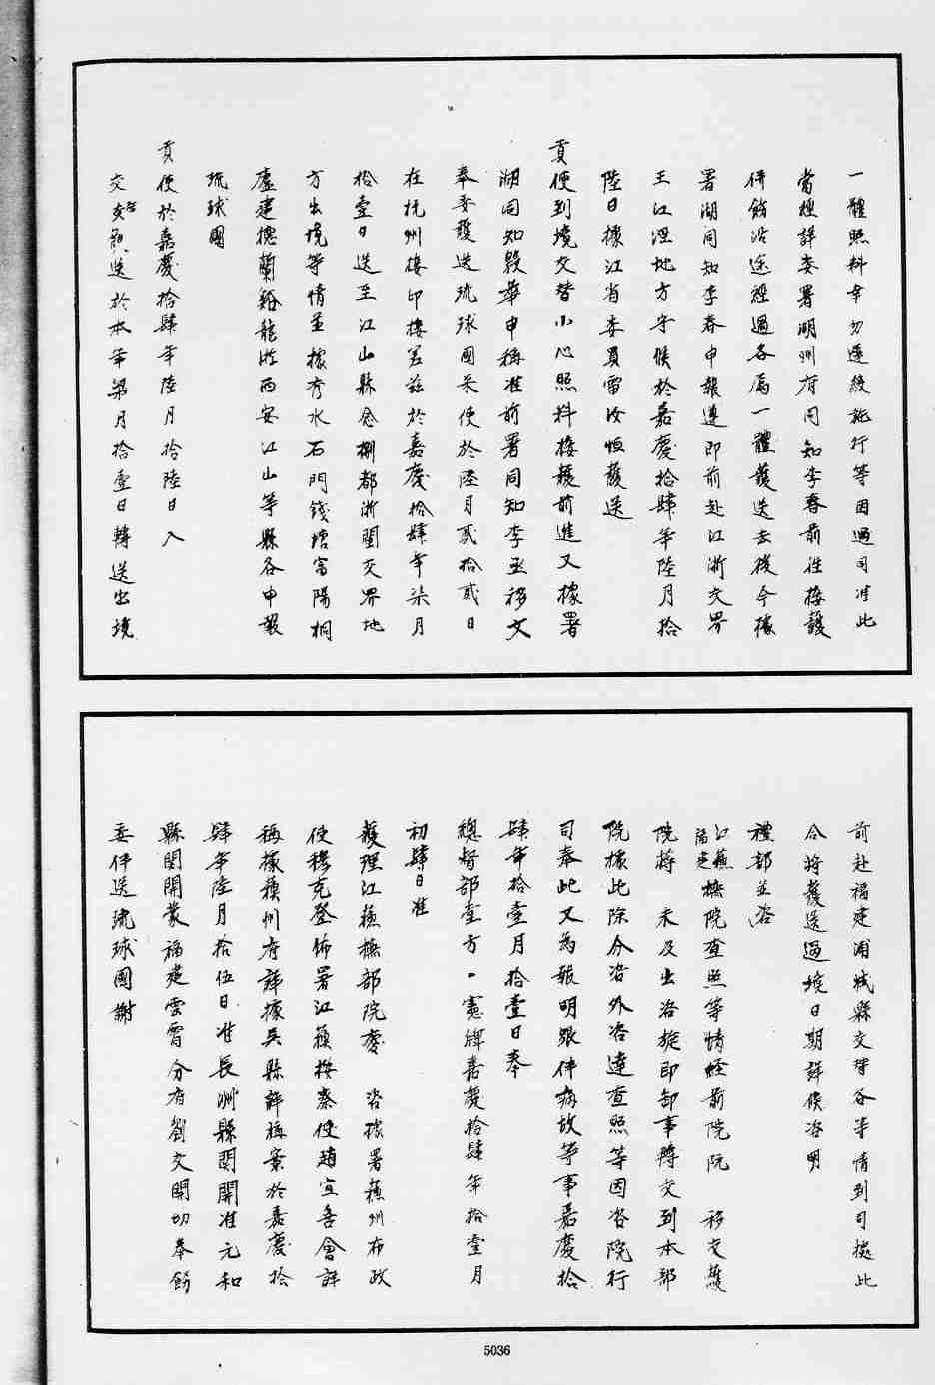 一體照料幸勿遲緩施行等因過司准此
當經詳委署湖州府同知李春前往接護
併飭沿途經過各屬一體護送去後今據
署湖同知李春申報遵即前赴江浙交界
王江涇地方守候於嘉慶拾肆年陸月拾
陸日據江省委員雷汝恒護送
貢使到境交替小心照料接護前進又據署
湖同知殷華申稱准前署同知李丞移文
奉委護送琉球國來使於陸月貳拾貳日
在杭州接印接差茲於嘉慶拾肆年柒月
拾壹日送至江山縣念捌都浙閩交界地
方出境等情並據秀水石門錢塘富陽桐
廬建德蘭谿龍游西安江山等縣各申報
琉球國
貢使於嘉慶拾肆年陸月拾陸日入
交替護送於本年柒月拾壹日轉送出境
前赴福建浦城縣交替各等情到司據此
合將護送過境日期詳候咨明
禮部並咨
江蘇福建撫院查照等情經前院阮 移交護
院蔣 未及出咨旋即卸事轉交到本部
院據此除分咨外咨達查照等因咨院行
司奉此又為報明跟伴病故等事嘉慶拾
肆年拾壹月拾壹日奉
總督部堂方。憲牌嘉慶拾肆年拾壹月
初肆日准
護理江蘇撫部院慶 咨據署蘇州布政
使穆克登佈署江蘇按察使趙宜喜會詳
稱據蘇州府詳據吳縣詳稱案於嘉慶拾
肆年陸月拾伍日准長洲縣關開准元和
縣關開蒙福建雲霄分府劉文開切奉飭
委伴送琉球國謝
5036